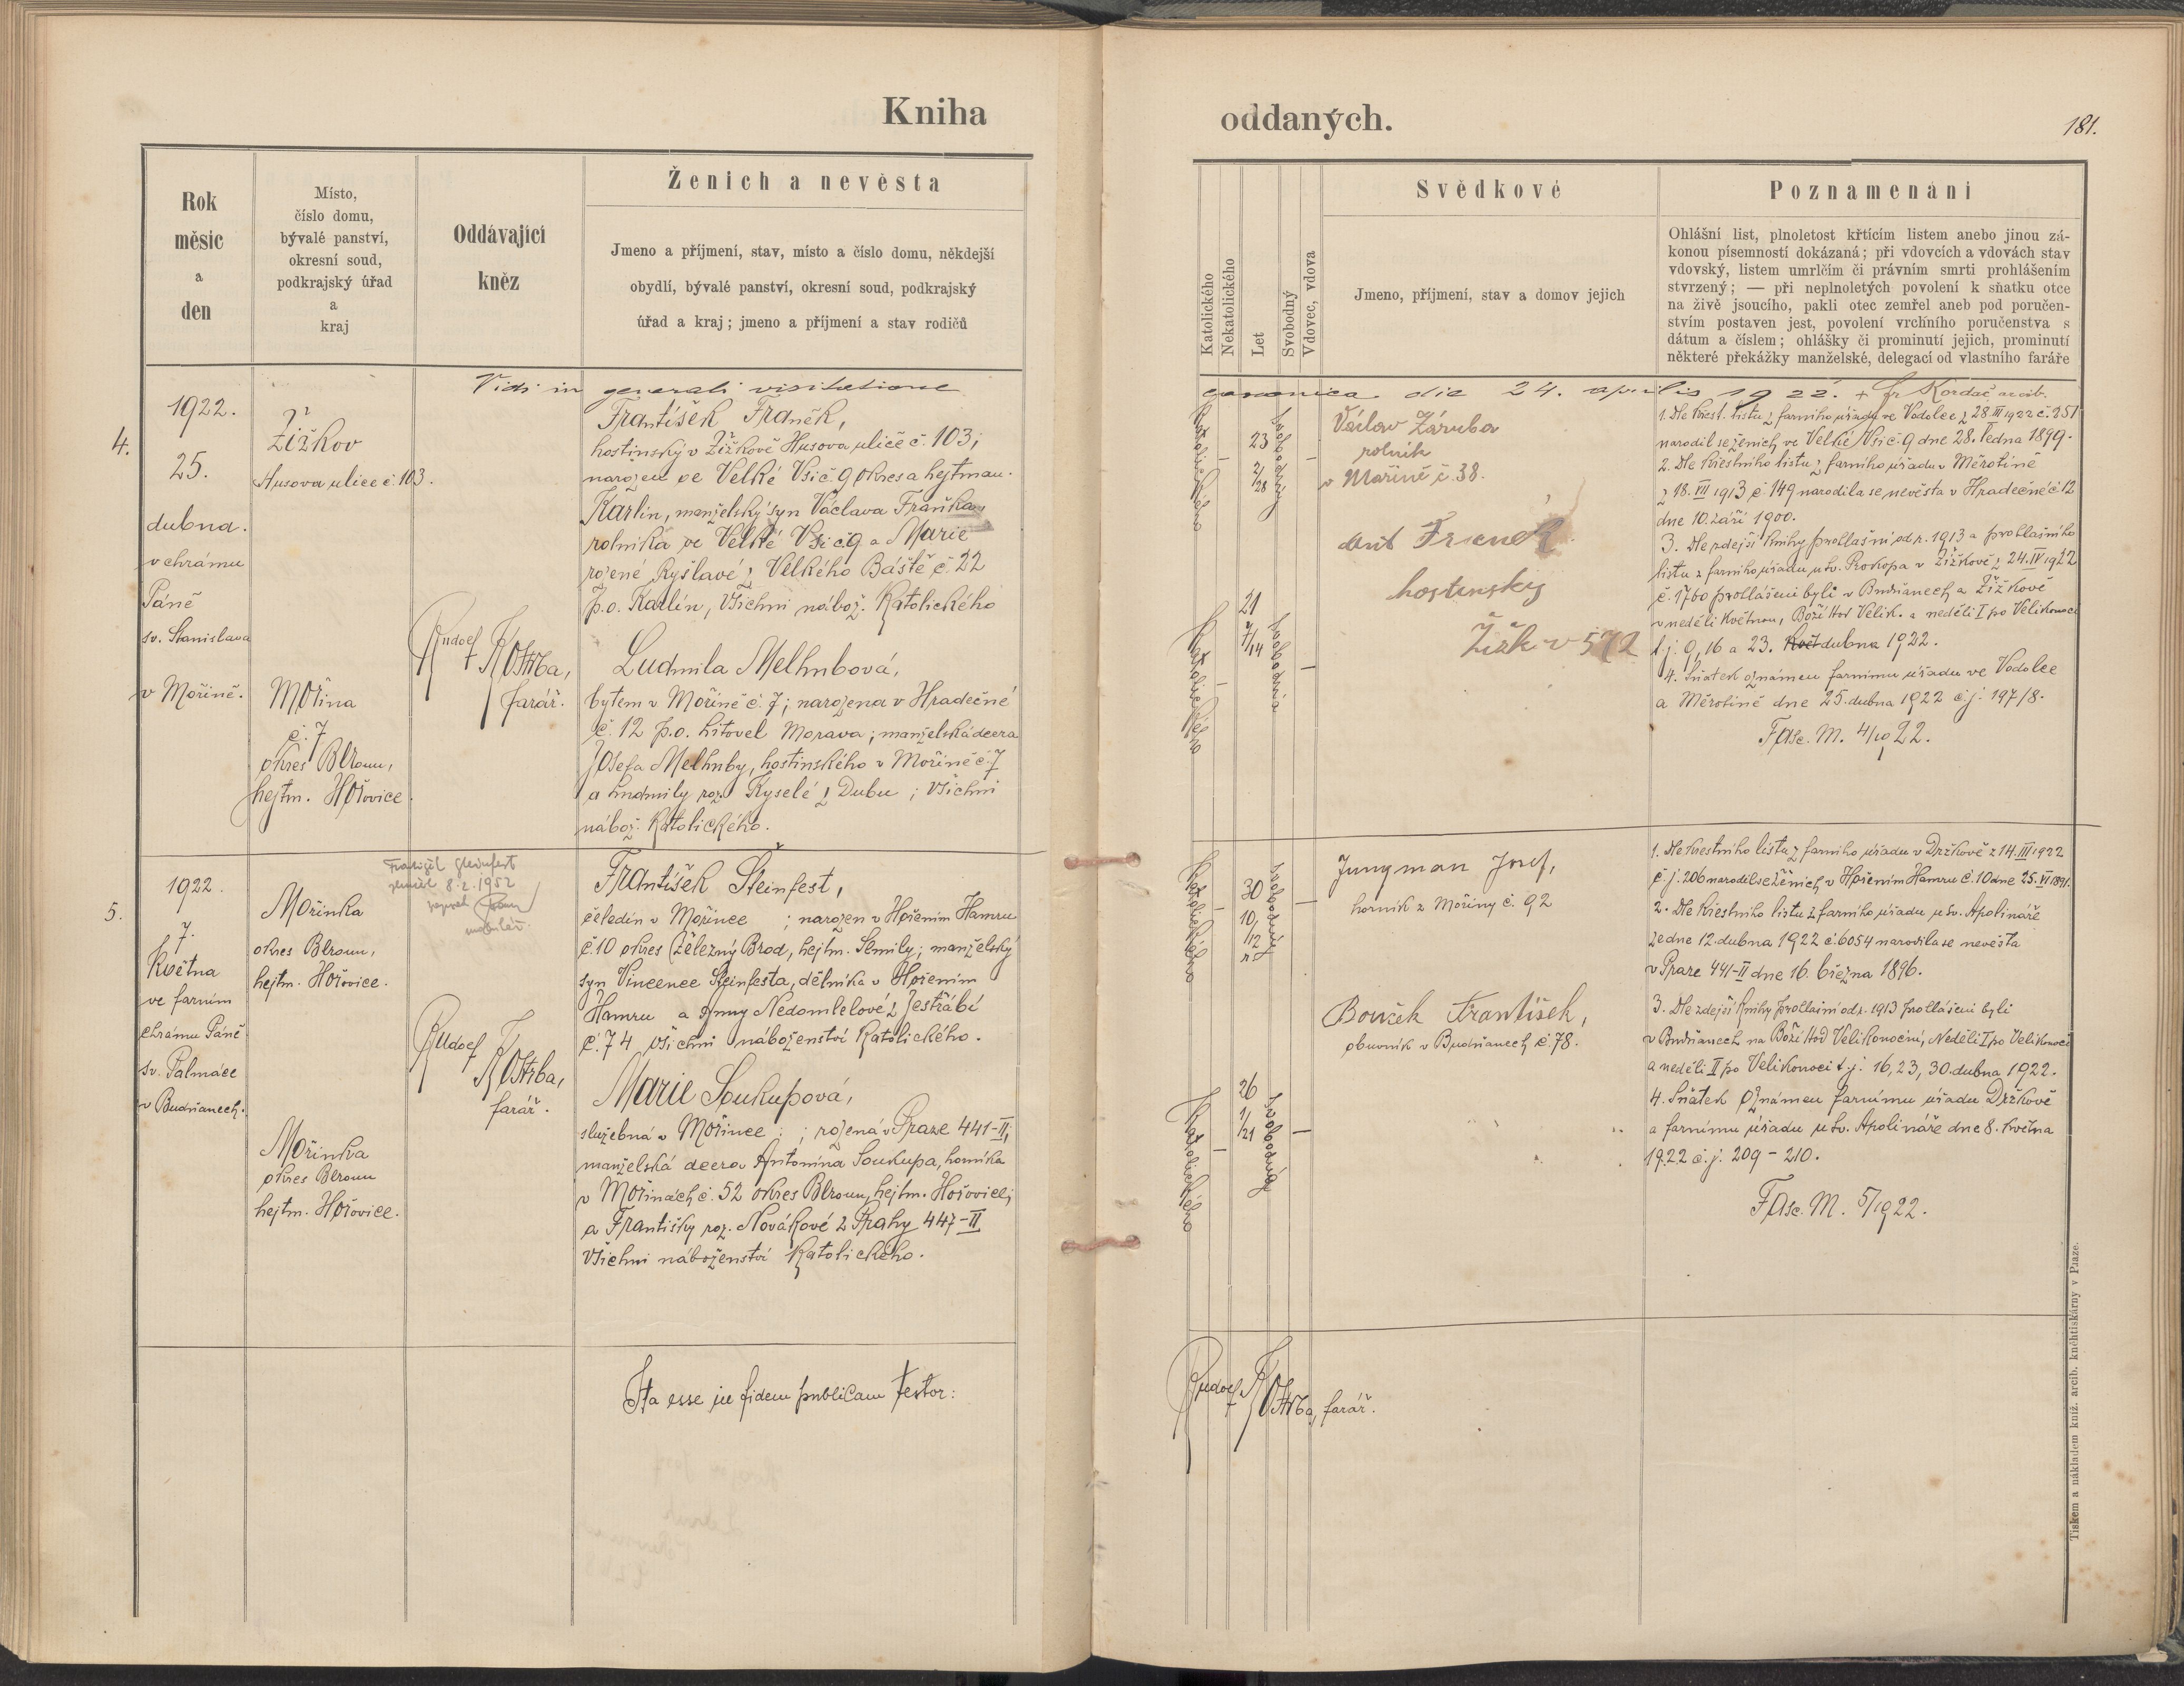 Kniha
oddaných.
181.
Rok
měsíc
a
den
Místo,
číslo domu,
bývalé panství,
okresní soud,
podkrajský úřad
a
kraj
Oddávající
kněz
Ženich a nevěsta
Jmeno a příjmení, stav, místo a číslo domu, někdejší
obydlí, bývalé panství, okresní soud, podkrajský
úřad a kraj; jmeno a příjmení a stav rodičů
Katolického
Nekatolického
Let
Svobodný
Vdovec, vdova
Svědkové
Jmeno, příjmení, stav a domov jejich
Poznamenání
Ohlášní list, plnoletost křtícím listem anebo jinou zá-
konou písemností dokázaná; při vdovcích a vdovách stav
vdovský, listem umrlčím či právním smrti prohlášením
stvrzený; — při neplnoletých povolení k sňatku otce
na živě jsoucího, pakli otec zemřel aneb pod poručen-
stvím postaven jest, povolení vrchního poručenstva s
dátum a číslem; ohlášky či prominutí jejich, prominutí
některé překážky manželské, delegací od vlastního faráře
Vidi in generali visitatione canonica die 24. aprilis 1922. + Fr Kordač arcib.
4.
1922.
25.
dubna.
v chrámu
Páně
sv. Stanislava
v Mořině.
Žižkov
Husova ulice č. 103.
Mořina
č. 7
okres Beroun,
hejtm. Hořovice
Rudolf
Kostrba,
farář.
František Franěk,
hostinský v Žižkově Husova ulice č. 103;
narozen ve Velké Vsi č. 9 okres a hejtman.
Karlín, manželský syn Václava Fraňka,
rolníka ve Velké Vsi č. 9 a Marie
rozené Ryšlavé z Velkého Báště č. 22
p.o. Karlín, všichni nábož. Katolického
Ludmila Melhubová,
bytem v Mořině č. 7; narozena v Hradečné
č. 12 p.o. Litovel Morava; manželská dcera
Josefa Melhuby, hostinského v Mořině č. 7
a Ludmily roz. Kyselé z Dubu; všichni
nábož. Katolického.
Katolického
23
2/28
Svobodný
Katolického
21
7/14
Svobodná
Václav Záruba
rolník
v Mořině č. 38.
Ant Franěk
hostinský
Žižkov 572
1. Dle křest. listu z farního úřadu ve Vodolce z 28 III 1922 č. 251
narodil se ženich ve Velké Vsi č. 9 dne 28. ledna 1899.
2. Dle křestního listu z farního úřadu v Měrotíně
z 18. VII 1913 č. 149 narodila se nevěsta v Hradečné č. 12
dne 10. září 1900.
3. Dle zdejší knihy prohlášní od r. 1913 a prohlašního
listu z farního úřadu u sv. Prokopa v Žižkově z 24. IV 1922
č. 1760 prohlášeni byli v Budňanech a Žižkově
v neděli Květnou, Boží Hod Velik. a neděli I po Velikonoci
t. j. 9, 16 a 23. dubna 1922.
4. Sňatek oznámen farnímu úřadu ve Vodolce
a Měrotíně dne 25. dubna 1922 č. j. 197/8.
Fasc. M. 4/1922.
5.
1922.
7.
Května
ve farním
chrámu Páně
sv. Palmáce
v Budňanech.
Mořinka
okres Beroun,
hejtm. Hořovice.
Mořinka
okres Beroun
hejtm. Hořovice.
zemřel 8.2.1952
Rudolf
Kostrba,
farář.
František Šteinfest,
čeledín v Mořince; narozen v Hořením Hamru
č. 10 okres Železný Brod, hejtm. Semily; manželský
syn Vincence Šteinfesta, dělníka v Hořením
Hamru a Anny Nedomlelové z Jestřábí
č. 74 všichni náboženství Katolického.
Marie Soukupová,
služebná v Mořince; rozená v Praze 441-II;
manželská dcera Antonína Soukupa, horníka
v Mořinách č. 52 okres Beroun, hejtm. Hořovice;
a Františky roz. Novákové z Prahy 447-II
Všichni náboženství Katolického.
Katolického
30
10/12
Svobodný
Katolického
26
1/21
Svobodná
Jungman Josef,
horník z Mořiny č. 92
Bouzek František,
obuvník v Budňanech č. 78.
1. Dle křestního listu z farního úřadu v Držkově z 14. III 1922
č. j. 206 narodil se ženich v Hořením Hamru č. 10 dne 25. VI 1891.
2. Dle křestního listu z farního úřadu u sv. Apolináře
ze dne 12. dubna 1922 č. 6054 narodila se nevěsta
v Praze 441-II dne 16. března 1896.
3. Dle zdejší Knihy prohlašní od r. 1913 prohlášeni byli
v Budňanech na Boží Hod Velikonoční, Neděli I po Velikonoci
a neděli II po Velikonoci t. j. 16, 23, 30. dubna 1922.
4. Sňatek oznámen farnímu úřadu Držkově
a farnímu úřadu u sv. Apolináře dne 8. května
1922 č. j. 209 - 210.
Fasc. M. 5/1922.
Ita esse in fidem publicam testor:
Rudolf Kostrba, farář.
Tiskem a nákladem kníž. arcib. knihtiskárny v Praze.